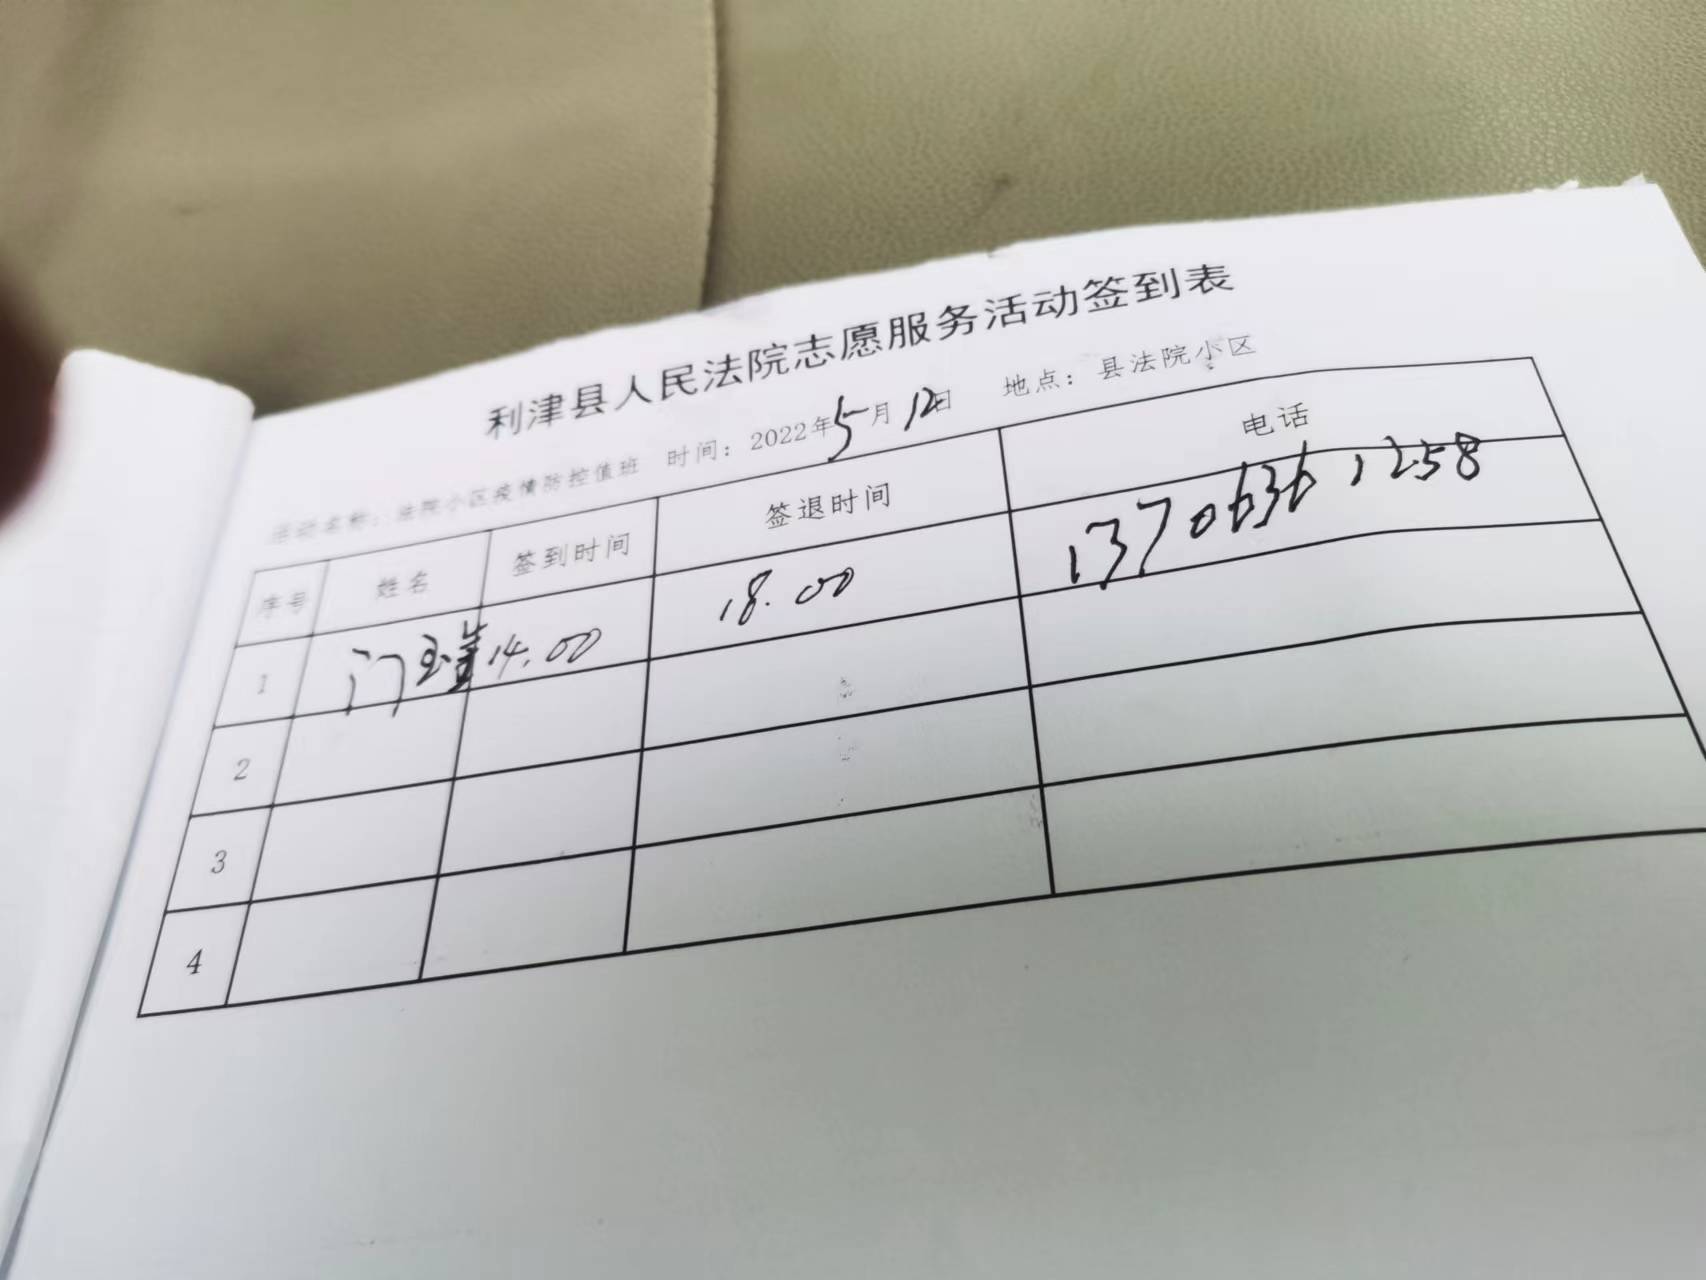 利津县人民法院志愿服务活动签到表
活动名称：法院小区疫情防控值班 时间：2022年5月12日 地点：县法院小区
序号 姓名 签到时间 签退时间 电话
1 门玉 14.00 18.00 13706361258
2
3
4